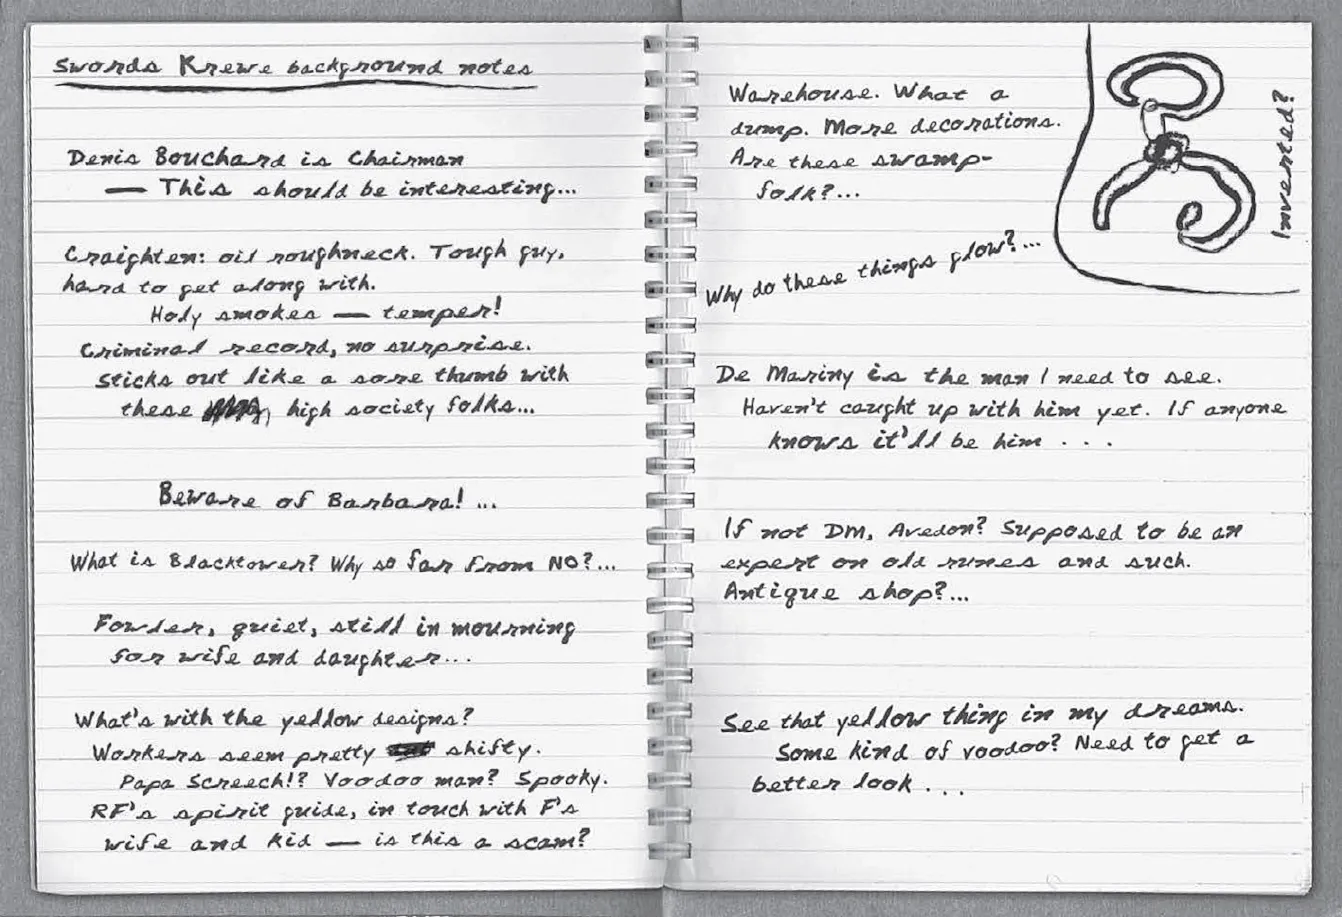 Swords Krewe background notes
Denis Bouchard is Chairman
— This should be interesting...
Craighten: oil roughneck. Tough guy,
hard to get along with.
Holy smokes — temper!
Criminal record, no surprise.
Sticks out like a sore thumb with
these high society folks...
Beware of Barbara! ...
What is Blacktower? Why so far from NO?...
Fowler, quiet, still in mourning
for wife and daughter...
What's with the yellow designs?
Workers seem pretty shifty.
Papa Screech!? Voodoo man? Spooky.
RF's spirit guide, in touch with F's
wife and kid — is this a scam?
Warehouse. What a
dump. More decorations.
Are these swamp-
folk?...
Inverted?
Why do these things glow?...
De Mariny is the man I need to see.
Haven't caught up with him yet. If anyone
knows it'll be him ...
If not DM, Avedon? Supposed to be an
expert on old runes and such.
Antique shop?...
See that yellow thing in my dreams.
Some kind of voodoo? Need to get a
better look ...